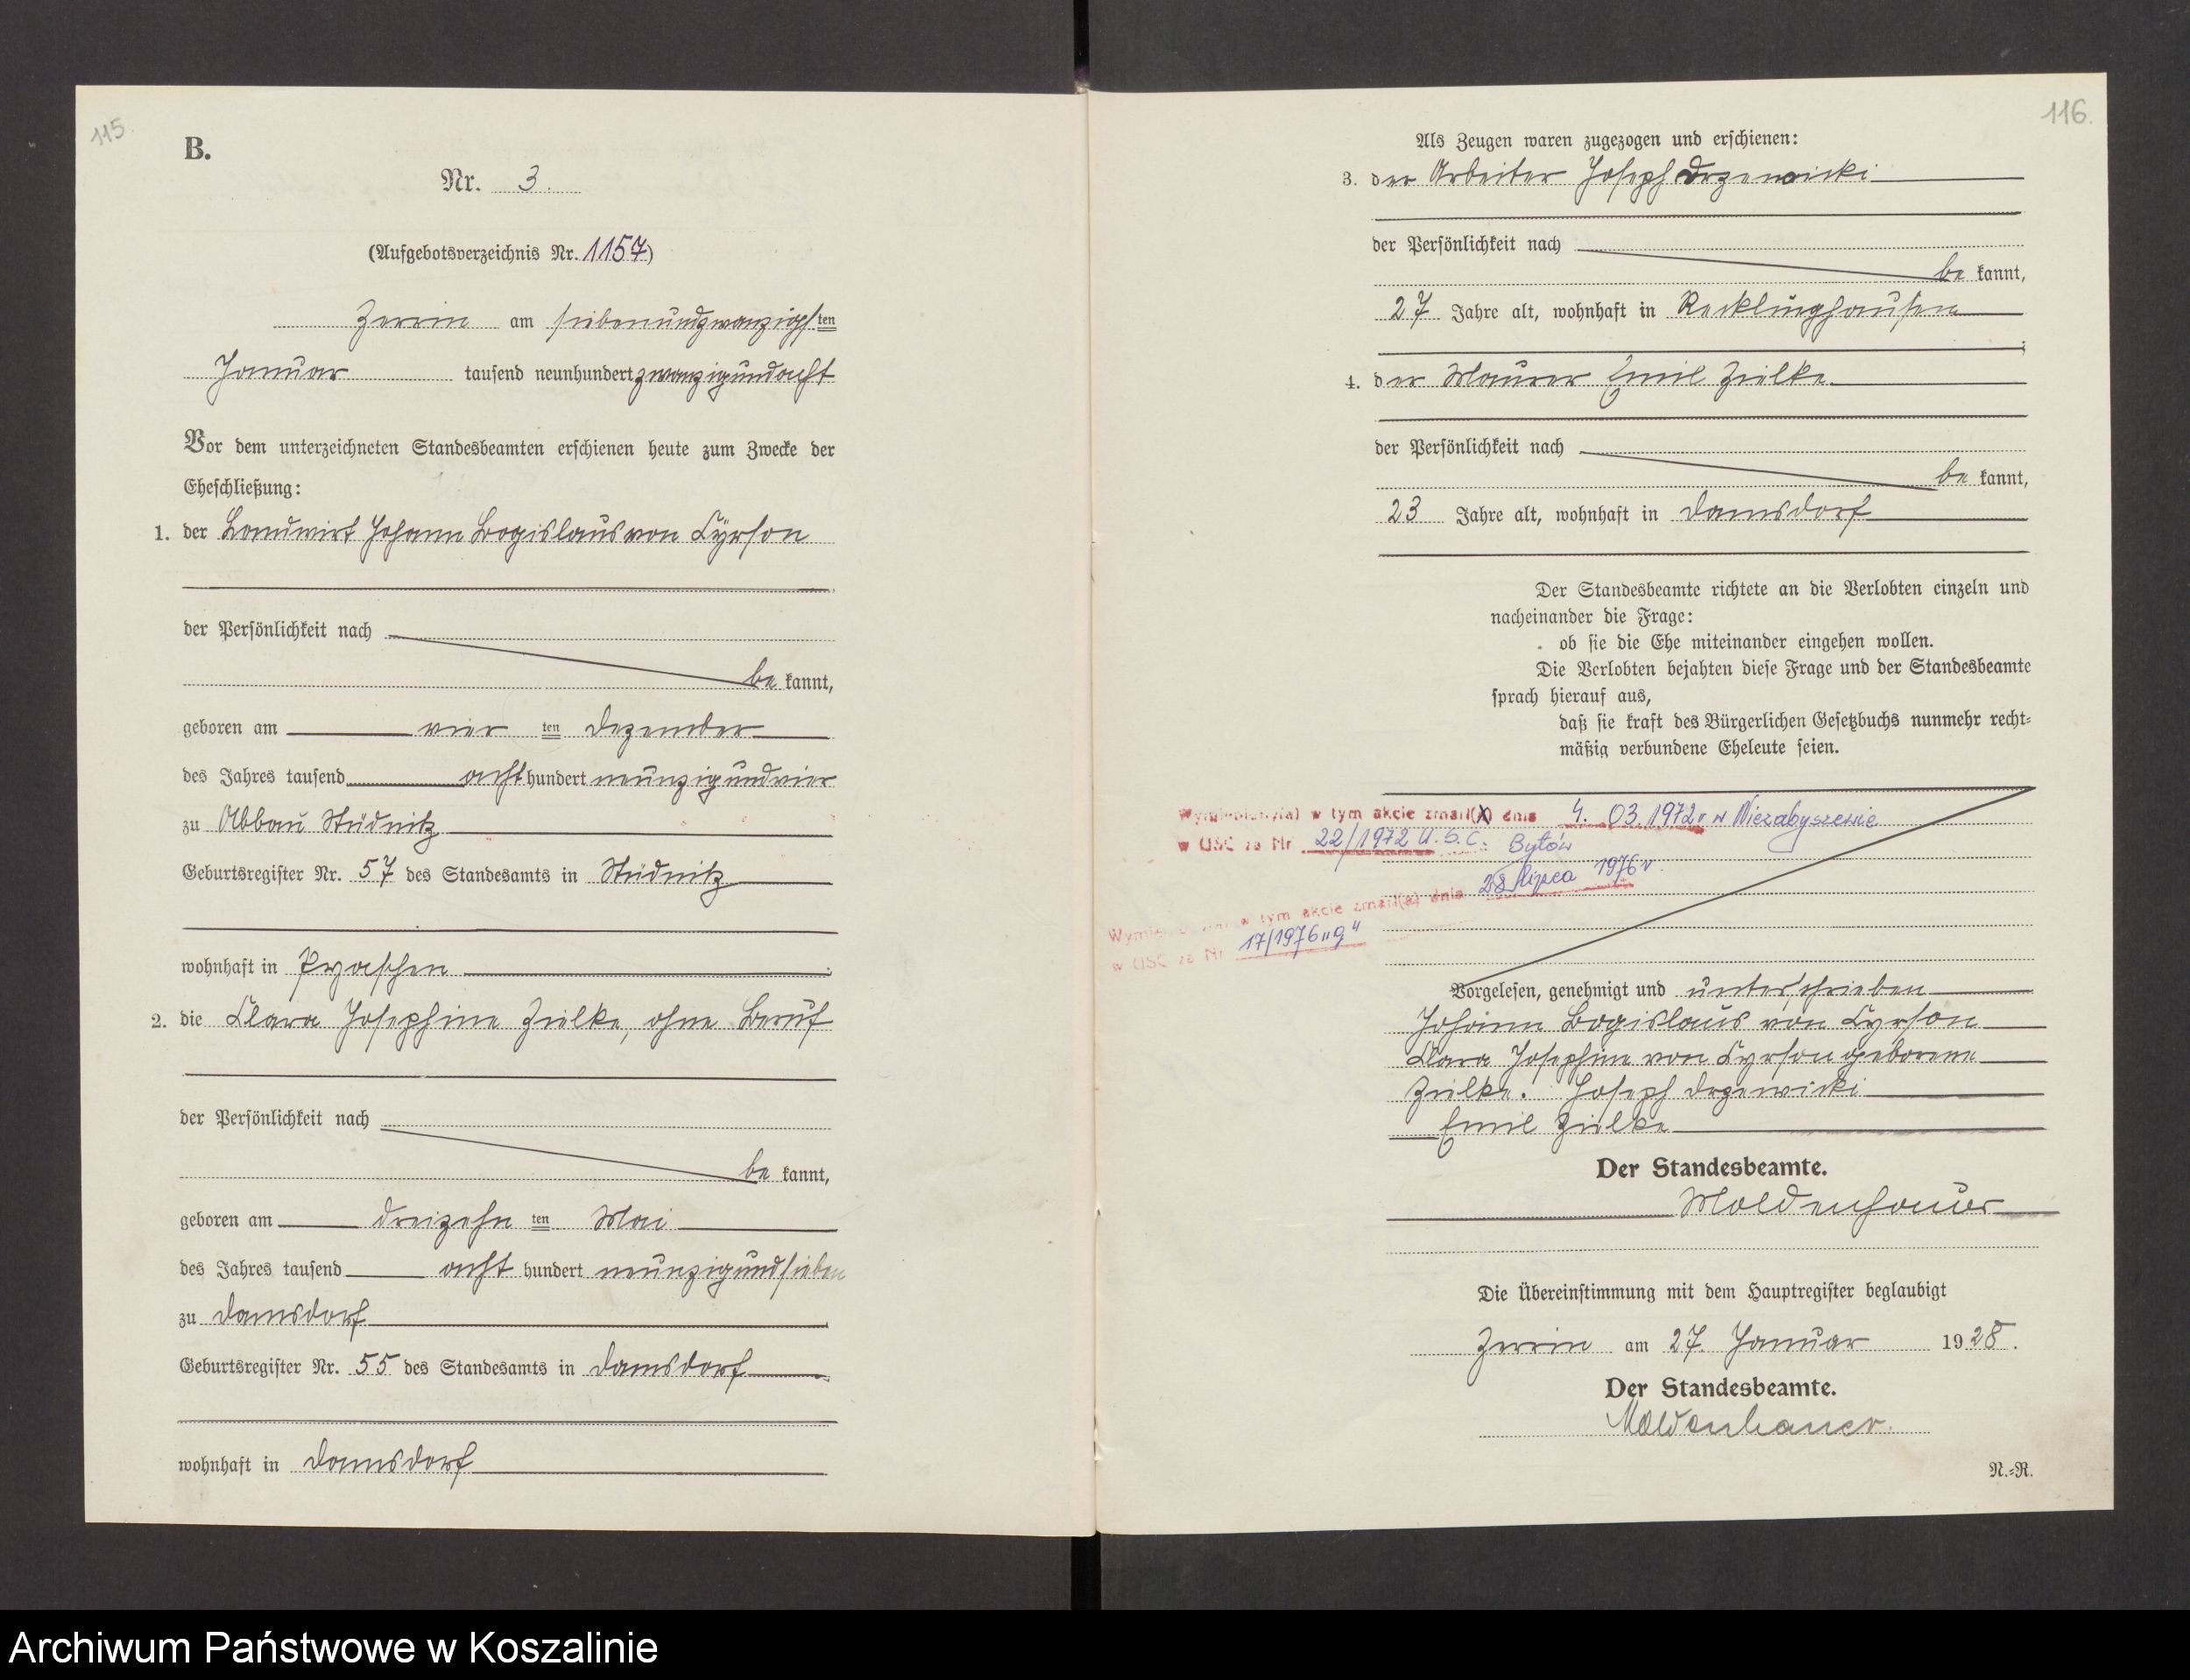 115.
B.
Nr. 3.
(Aufgebotsverzeichnis Nr. 1157)
Zerrin am siebenundzwanzigsten
Januar tausend neunhundert zwanzigundacht
Vor dem unterzeichneten Standesbeamten erschienen heute zum Zwecke der
Eheschließung:
1. der Landwirt Johann Bogislaus von Cyrson
der Persönlichkeit nach
be kannt,
geboren am vier ten Dezember
des Jahres tausend acht hundert neunzigundvier
zu Abbau Stüdnitz
Geburtsregister Nr. 57 des Standesamts in Stüdnitz
wohnhaft in Pyaschen
2. die Clara Josephine Zielke, ohne Beruf
der Persönlichkeit nach
be kannt,
geboren am dreizehn ten Mai
des Jahres tausend acht hundert neunzigundsieben
zu Damsdorf
Geburtsregister Nr. 55 des Standesamts in Damsdorf
wohnhaft in Damsdorf
116.
Als Zeugen waren zugezogen und erschienen:
3. der Arbeiter Joseph Drzewicki
der Persönlichkeit nach
be kannt,
27 Jahre alt, wohnhaft in Recklinghausen
;
4. der Maurer Emil Zielke
der Persönlichkeit nach
be kannt,
23 Jahre alt, wohnhaft in Damsdorf
Der Standesbeamte richtete an die Verlobten einzeln und
nacheinander die Frage:
ob sie die Ehe miteinander eingehen wollen.
Die Verlobten bejahten diese Frage und der Standesbeamte
sprach hierauf aus,
daß sie kraft des Bürgerlichen Gesetzbuchs nunmehr recht-
mäßig verbundene Eheleute seien.
Wymieniony(a) w tym akcie zmarł(a) dnia 4. 03. 1972 r w Niezabyszewie
w USC za Nr 22/1972 U.S.C. Bytów
Wymieniony w tym akcie zmarł(a) dnia 28 lipca 1976 r.
w USC za Nr 17/1976 „g"
Vorgelesen, genehmigt und unterschrieben
Johann Bogislaus von Cyrson
Clara Josephine von Cyrson geborene
Zielke. Joseph Drzewicki
Emil Zielke
Der Standesbeamte.
Moldenhauer
Die Übereinstimmung mit dem Hauptregister beglaubigt
Zerrin am 27. Januar 1928.
Der Standesbeamte.
Moldenhauer.
N.-R.
Archiwum Państwowe w Koszalinie